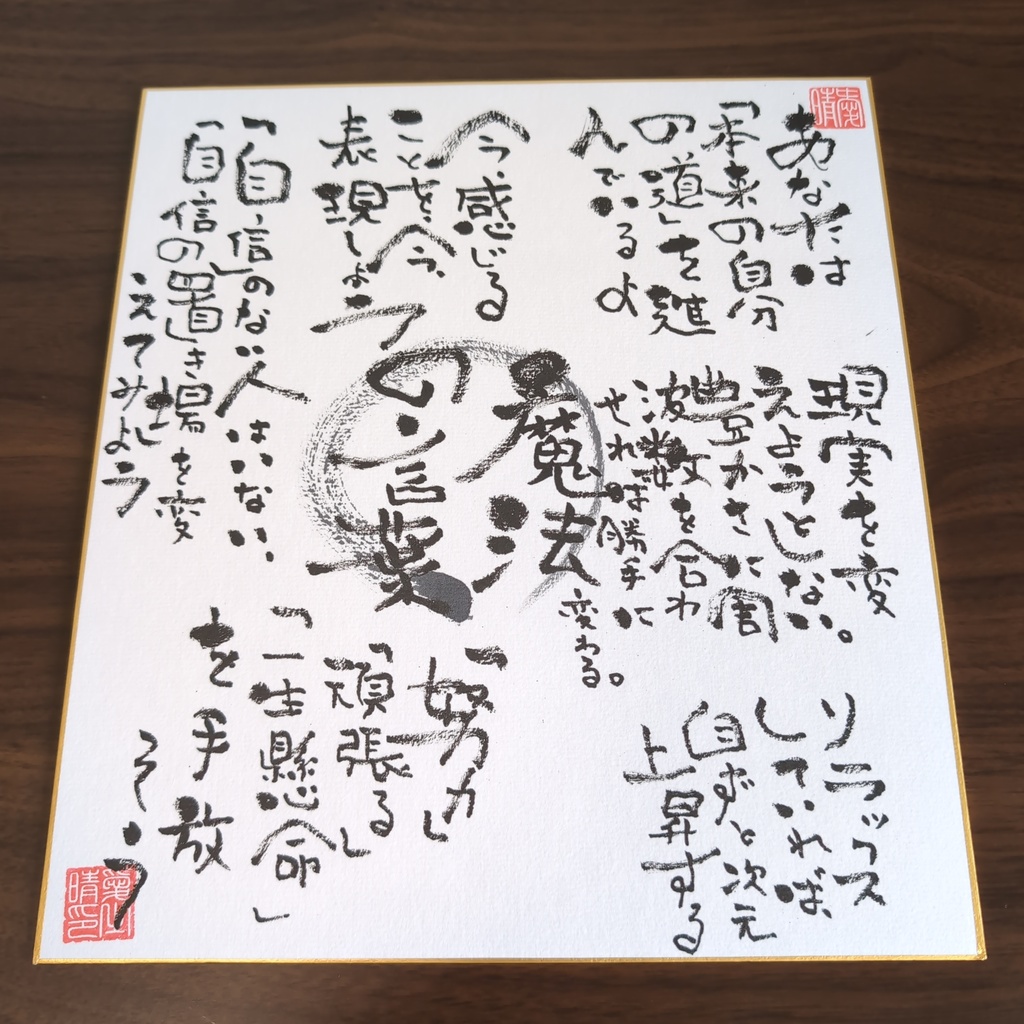 あなたは
「本来の自分
の道」を進
んでいるよ
現実を変
えようとしない。
豊かさに周
波数を合わ
せれば勝手に
変わる。
リラックス
していれば、
自ずと次元
上昇する
魔法
の言葉
今、感じる
ことを、今、
表現しよう
「自信」のない人はいない、
「自信の置き場を変
えてみよう
「努力」
「頑張る」
「一生懸命」
を手放
そう